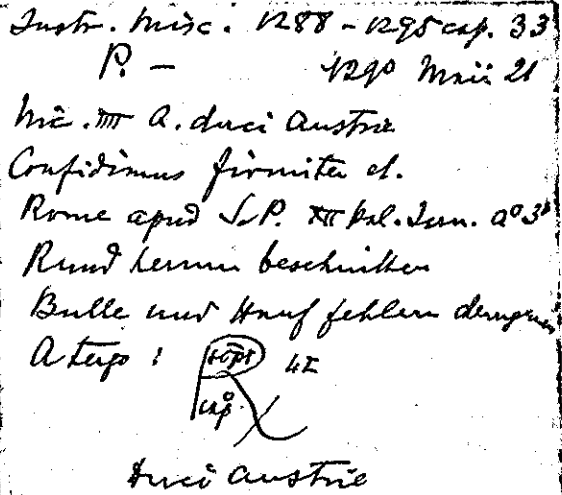 Instr. Misc. 1288-1295 cap. 33
P. - 1290 Maii 21
Nic. IIII A. duci Austrie
Confidimus firmiter et.
Rome apud S.P. XII kal. Jun. a° 3°
Rund herum beschnitten
Bulle und Hanf fehlen
A tergo :
cap.
Duci Austrie